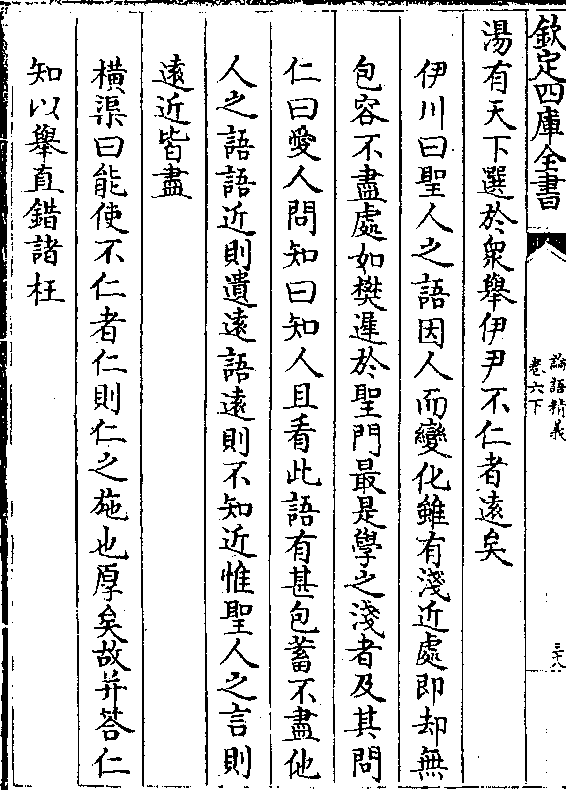 欽定四庫全書
論語精義
卷六下
三十八
湯有天下選於衆舉伊尹不仁者遠矣
伊川曰聖人之語因人而變化雖有淺近處即却無
包容不盡處如樊遲於聖門最是學之淺者及其問
仁曰愛人問知曰知人且看此語有甚包蓄不盡他
人之語語近則遺遠語遠則不知近惟聖人之言則
遠近皆盡
橫渠曰能使不仁者仁則仁之施也厚矣故并答仁
知以舉直錯諸枉